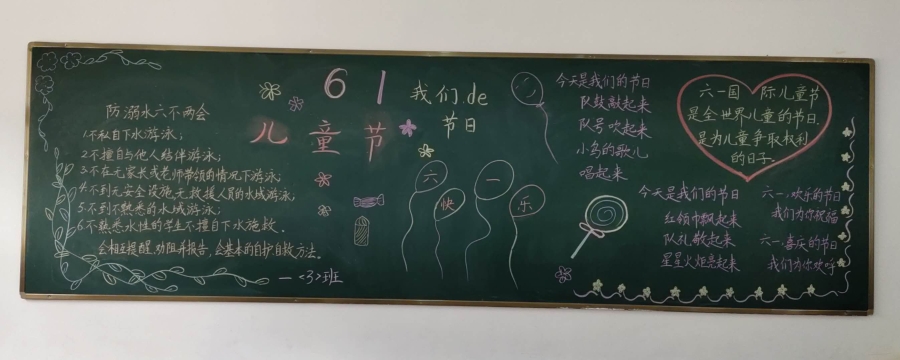 防溺水六不两会
1.不私自下水游泳；
2.不擅自与他人结伴游泳；
3.不在无家长或老师带领的情况下游泳；
4.不到无安全设施、无救援人员的水域游泳；
5.不到不熟悉的水域游泳；
6.不熟悉水性的学生不擅自下水施救.
会相互提醒、劝阻并报告，会基本的自护自救方法。
61
儿童节
我们.de
节日
六一
快乐
一<3>班
今天是我们的节日
队鼓敲起来
队号吹起来
小鸟的歌儿
唱起来
今天是我们的节日
红领巾飘起来
队礼敬起来
星星火炬亮起来
六一国际儿童节
是全世界儿童的节日.
是为儿童争取权利
的日子.
六一.欢乐的节日
我们为你祝福
六一.喜庆的节日
我们为你欢呼